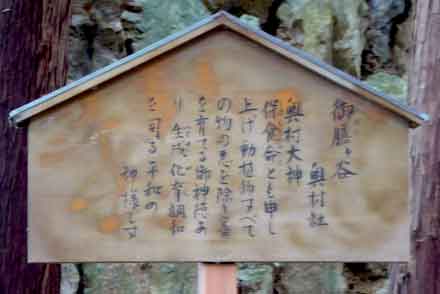 御膳ヶ谷
奥村社
奥村大神
保食命とも申し
上げ動植物すべて
の物の悪を除き善
を育てる御神徳あ
り生成化育調和
を司る平和の
神様です